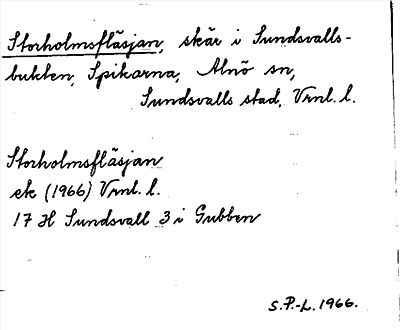 Storholmsfläsjan, skär i Sundsvalls-
bukten, Spikarna, Alnö sn,
Sundsvalls stad, Vrnl. l.
Storholmsfläsjan
ek (1966) Vrnl. l.
17 H Sundsvall 3 i Gubben
S.P.-L. 1966.